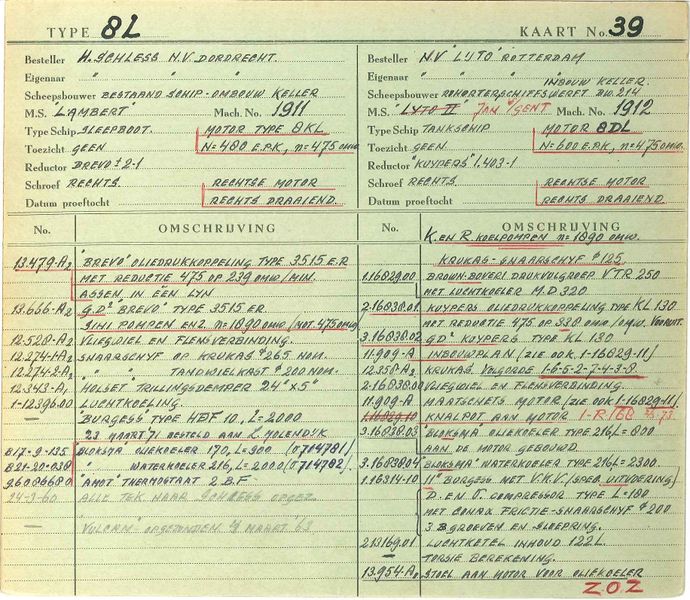 TYPE 8L
KAART No. 39
Besteller H. SCHLESS N.V. DORDRECHT.
Eigenaar " " "
Scheepsbouwer BESTAAND SCHIP-OMBOUW KELLER
M.S. "LAMBERT" Mach. No. 1911
Type Schip SLEEPBOOT. MOTOR TYPE 8KL
Toezicht GEEN N=480 E.P.K, n=475 omw.
Reductor BREVO ± 2-1
Schroef RECHTS. RECHTSE MOTOR
Datum proeftocht RECHTS DRAAIEND.
Besteller N.V "LIJTO" ROTTERDAM
Eigenaar " " " INBOUW KELLER.
Scheepsbouwer BOHORTERSCHIFFSWERFT BW.214
M.S. "LYTO II" JAN V/GENT Mach. No. 1912
Type Schip TANKSCHIP MOTOR 8DL
Toezicht GEEN N=600 E.P.K, n=475 omw.
Reductor "KUYPERS" 1.403-1
Schroef RECHTS RECHTSE MOTOR
Datum proeftocht RECHTS DRAAIEND.
No. OMSCHRIJVING
13.479-A2 "BREVO" OLIEDRUKKOPPELING TYPE 3515 E.R
MET REDUCTIE 475 OP 239 OMW/MIN.
ASSEN IN ÉÉN LYN
13.666-A2 G.D. "BREVO" TYPE 3515 ER.
IHI POMPEN ENZ. n=1890 OMW/ (NOT 475 OMW)
12.528-A2 VLIEGWIEL EN FLENSVERBINDING.
12.274-A2 SNAARSCHYF OP KRUKAS Ø 265 NOM.
12.274-2A2 " " TANDWIELKAST Ø 200 NOM.
12.343-A1 "HOLSET" TRILLINGSDEMPER 24" x 5"
1-12396.00 LUCHTKOELING.
— "BURGESS" TYPE HBF 10, L=2000
23 MAART 71 BESTELD AAN L. MOLENDYK
B17-9-135 BLOKSMA OLIEKOELER 170, L=900 (0714781)
B21-20-038 " WATERKOELER 216, L=2000 (0714782)
96086680 "AMOT" THERMOSTAAT 2 B.F
24-3-60 ALLE TEK. NAAR SCHLESS OPGEZ.
— "VULCAN" OPGEZONDEN 4/8 MAART '63
No. OMSCHRIJVING
K. EN R. KOELPOMPEN n=1890 OMW.
KRUKAS-SNAARSCHYF Ø 125
1.16829.00 BROWN-BOVERI. DRUKVULGROEP VTR 250
MET LUCHTKOELER M.D 320
2-16838.01 KUYPERS OLIEDRUKKOPPELING TYPE KL 130
MET REDUCTIE 475 OP 338 OMW/OMW. VOORUIT.
3.16838.02 G.D. KUYPERS TYPE KL 130
11.909-A INBOUWPLAN (ZIE OOK 1-16829-11)
12.358 A2 KRUKAS VOLGORDE 1-6-5-2-7-4-3-8
2-16838.00 VLIEGWIEL EN FLENSVERBINDING.
11.909-A MAATSCHETS MOTOR (ZIE OOK 1-16829-11)
1.16829.10 KNALPOT AAN MOTOR 1-R/68
3.16838.03 "BLOKSMA" OLIEKOELER TYPE 216 L=800
AAN DE MOTOR GEBOUWD.
3.16838.04 "BLOKSMA" WATERKOELER TYPE 216 L=2300.
1.16314-10 11" BURGESS MET V.K.V. (SPEC. UITVOERING)
D. EN V. COMPRESSOR TYPE L=180
MET CONAX FRICTIE-SNAARSCHYF Ø 200
3 B GROEVEN EN SLEEPRING.
2.13169.01 LUCHTKETEL INHOUD 122L.
— TORSIE BEREKENING.
13.954-A2 STOEL AAN MOTOR VOOR OLIEKOELER
ZOZ